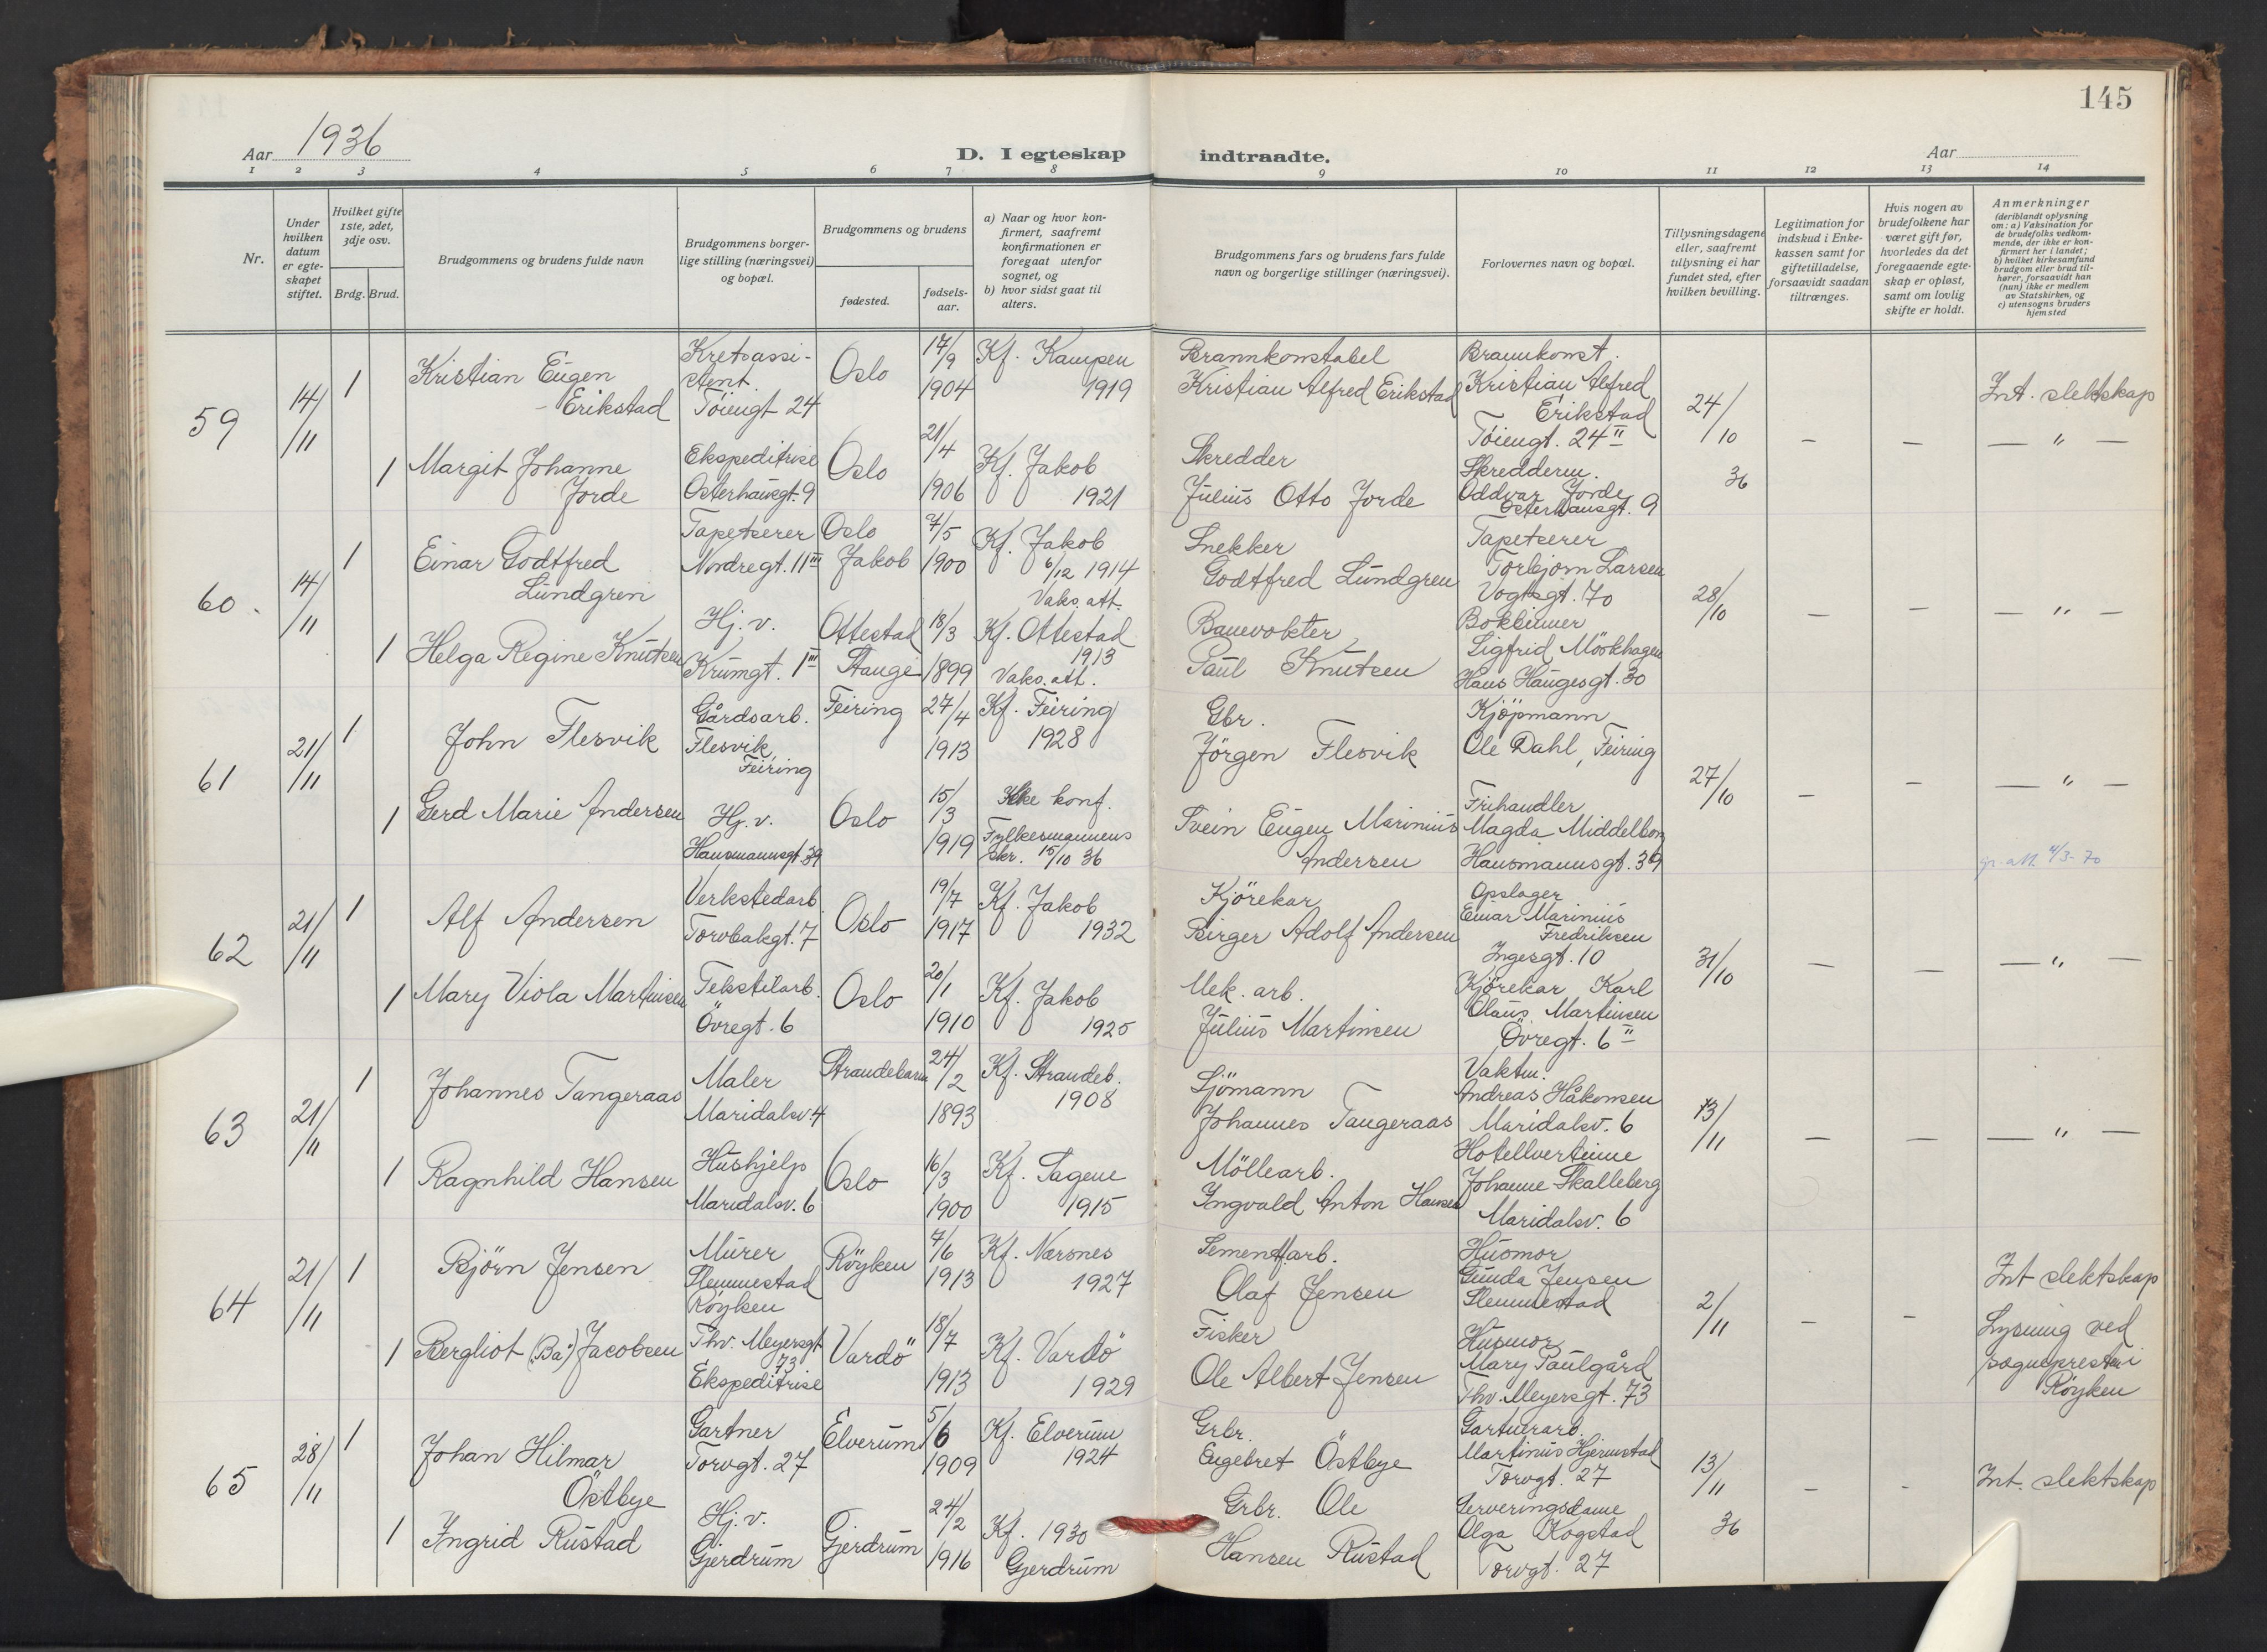 145
Aar 1936
D. I egteskap indtraadte.
Aar
1 2 3 4 5 6 7 8 9 10 11 12 13 14
Nr.
Under
hvilken
datum
er egte-
skapet
stiftet.
Hvilket gifte
1ste, 2det,
3dje osv.
Brdg. Brud.
Brudgommens og brudens fulde navn
Brudgommens borger-
lige stilling (næringsvei)
og bopæl.
Brudgommens og brudens
fødested.
fødsels-
aar.
a) Naar og hvor kon-
firmert, saafremt
konfirmationen er
foregaat utenfor
sognet, og
b) hvor sidst gaat til
alters.
Brudgommens fars og brudens fars fulde
navn og borgerlige stillinger (næringsvei).
Forlovernes navn og bopæl.
Tillysningsdagene
eller, saafremt
tillysning ei har
fundet sted, efter
hvilken bevilling.
Legitimation for
indskud i Enke-
kassen samt for
giftetilladelse,
forsaavidt saadan
tiltrænges.
Hvis nogen av
brudefolkene har
været gift før,
hvorledes da det
foregaaende egte-
skap er opløst,
samt om lovlig
skifte er holdt.
Anmerkninger
(deriblandt oplysning
om: a) Vaksination for
de brudefolks vedkom-
mende, der ikke er kon-
firmert her i landet;
b) hvilket kirkesamfund
brudgom eller brud til-
hører, forsaavidt han
(hun) ikke er medlem
av Statskirken, og
c) utensogns bruders
hjemsted
59
14/11
1
Kristian Eugen
- Erikstad
Kretsassi-
stent.
Töiengt 24
Oslo
17/9
1904
Kf. Kampen
1919
Brannkonstabel
Kristian Alfred Erikstad
Brannkonst.
Kristian Alfred
Erikstad
Töiengt. 24 II
24/10
36
Int. slektskap
1
Margit Johanne
Jorde
Ekspeditrise
Osterhausgt. 9
Oslo
21/4
1906
Kf. Jakob
1921
Skredder
Julius Otto Jorde
Skredderm.
Oddvar Jorde
Osterhausgt. 9
— — — " —
60.
14/11
1
Einar Godtfred
Lundgren
Tapetserer
Nordregt. 11 III
Oslo
Jakob
7/5
1900
Kf. Jakob
6/12 1914
Vaks. att.
Snekker
Godtfred Lundgren
Tapetserer
Torbjørn Larsen
Vogtsgt. 70
28/10
— — — " —
1
Helga Regine Knutsen
Hj. v.
Krumgt. 1 III
Ottestad
Stange
18/3
1899
Kf. Ottestad
1913
Vaks. att.
Banevokter
Paul Knutsen
Bokbinner
Sigfrid Mörkhagen
Hans Haugesgt. 30
61
21/11
1
John Flesvik
Gårdsarb.
Flesvik,
Feiring
Feiring
27/4
1913
Kf. Feiring
1928
Gbr.
Jörgen Flesvik
Kjöpmann
Ole Dahl, Feiring
27/10
— — — " —
1
Gerd Marie Andersen
Hj. v.
Hausmannsgt. 39
Oslo
15/3
1919
Ikke konf.
Fylkesmannens
skr. 15/10 36
Svein Eugen Marinius
Andersen
Frihandler
Magda Middelborg
Hausmannsgt. 39
gr. att. 4/3-70
62
21/11
1
Alf Andersen
Verkstedarb.
Torvbakgt. 7
Oslo
19/7
1917
Kf. Jakob
1932
Kjörekar
Birger Adolf Andersen
Opslager
Einar Marinius
Fredriksen
Ingesgt. 10
31/10
— — — " —
1
Mary Viola Martinsen
Tekstilarb.
Övregt. 6
Oslo
20/1
1910
Kf. Jakob
1925
Mek. arb.
Julius Martinsen
Kjörekar Karl
Olaus Martinsen
Övregt. 6 II
63
21/11
1
Johannes Tangeraas
Maler
Maridalsv. 4
Strandebarm
24/2
1893
Kf. Strandeb.
1908
Sjömann
Johannes Tangeraas
Vaktm.
Andreas Håkonsen
Maridalsv. 6
13/11
— — — " —
1
Ragnhild Hansen
Hushjelp
Maridalsv. 6
Oslo
16/3
1900
Kf. Sagene
1915
Möllearb.
Ingvald Anton Hansen
Hotellvertinne
Johanne Skalleberg
Maridalsv. 6
64
21/11
1
Bjørn Jensen
Murer
Slemmestad
Röyken
Röyken
7/6
1913
Kf. Nærsnes
1927
Sementarb.
Olaf Jensen
Husmor
Gunda Jensen
Slemmestad
2/11
Int slektskap
1
Bergliot (Ba) Jacobsen
Thv. Meyersgt
73.
Ekspeditrise
Vardö
18/7
1913
Kf. Vardö
1929
Fisker
Ole Albert Jensen
Husmor
Mary Paulgård
Thv. Meyersgt. 73
— —
Lysning ved
sogneprest i
Röyken
65
28/11
1
Johan Hilmar
Östbye
Gartner
Torvgt. 27
Elverum
5/6
1909
Kf. Elverum
1924
Grbr.
Engebret Östbye
Gartnerarb.
Martinus Hjermstad
Torvgt. 27
13/11
36
— —
Int. slektskap
1
Ingrid Rustad
Hj. v.
Gjerdrum
Gjerdrum
24/2
1916
Kf. 1930
Gjerdrum
Grbr. Ole
Hansen Rustad
Serveringsdame
Olga Kogstad
Torvgt. 27